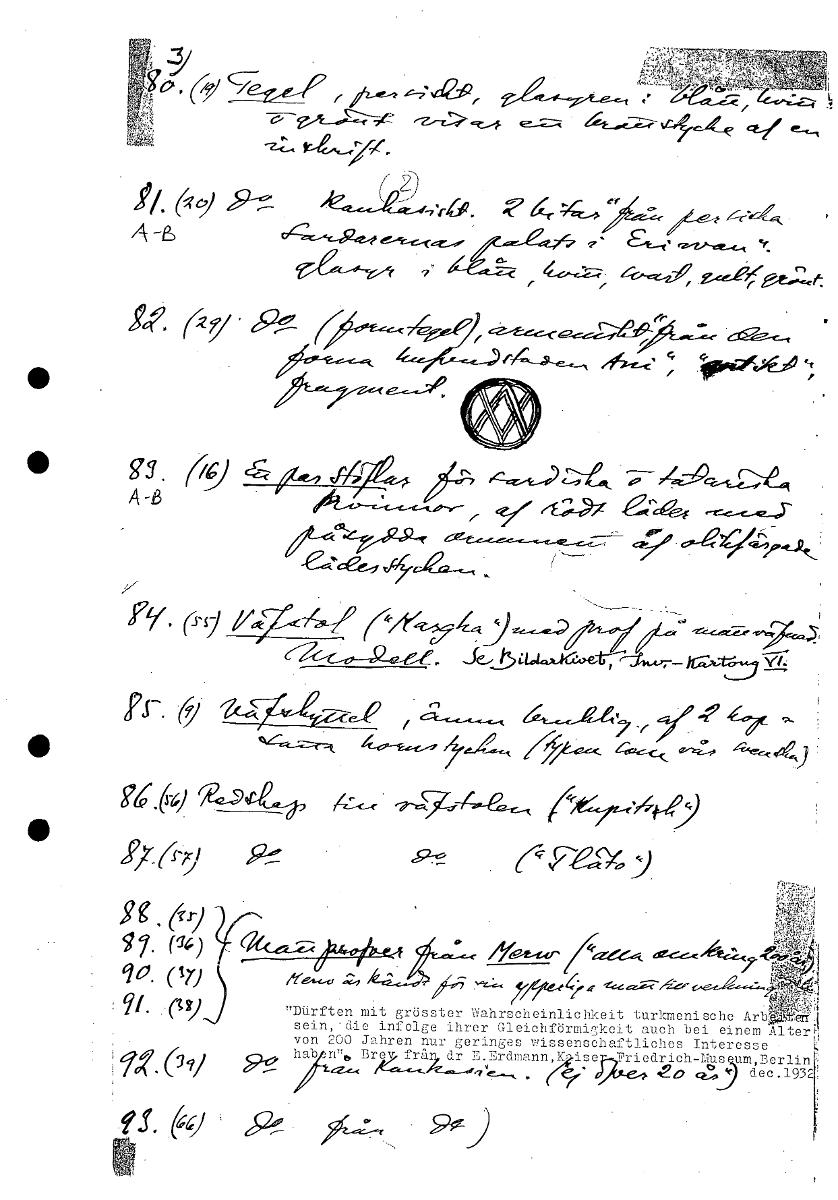 3)
80. (19) Tegel, persiskt, glasyren i blått, hvitt
o grönt visar ett brottstycke af en
inskrift.
(2)
81. (20) do Kaukasiskt. 2 bitar "från persiska
A-B Sardarernas palats i Eriwan".
glasyr i blått, hvitt, svart, gult, grönt.
82. (29) do (formtegel), armeniskt, "från den
forna hufvudstaden Ani", "antikt",
fragment.
83. (16) Ett par stöflar för sardiska o tatariska
A-B kvinnor, af rödt läder med
påsydda ornament af olikfärgade
läderstycken.
84. (55) Väfstol ("Kasgha") med prof på mattväfnad.
Modell. Se Bildarkivet, Inv.-Kartong VI.
85. (9) Väfskyttel, ännu bruklig, af 2 hop-
satta hornstycken (typen som vår svenska)
86. (56) Redskap till väfstolen ("Kupitsch")
87. (57) do do ("Flåto")
88. (35)
89. (36) Mattprofver från Merw ("alla omkring 200 år)
90. (37) Merw är kändt för sin yppediga mattillverkning
91. (38)
"Dürften mit grösster Wahrscheinlichkeit turkmenische Arbeiten
sein, die infolge ihrer Gleichförmigkeit auch bei einem Alter
von 200 Jahren nur geringes wissenschaftliches Interesse
haben". Brev från dr E.Erdmann,Kaiser-Friedrich-Museum,Berlin
dec.1932
92. (39) do från Kaukasien. (Ej över 20 år")
93. (66) do från do )